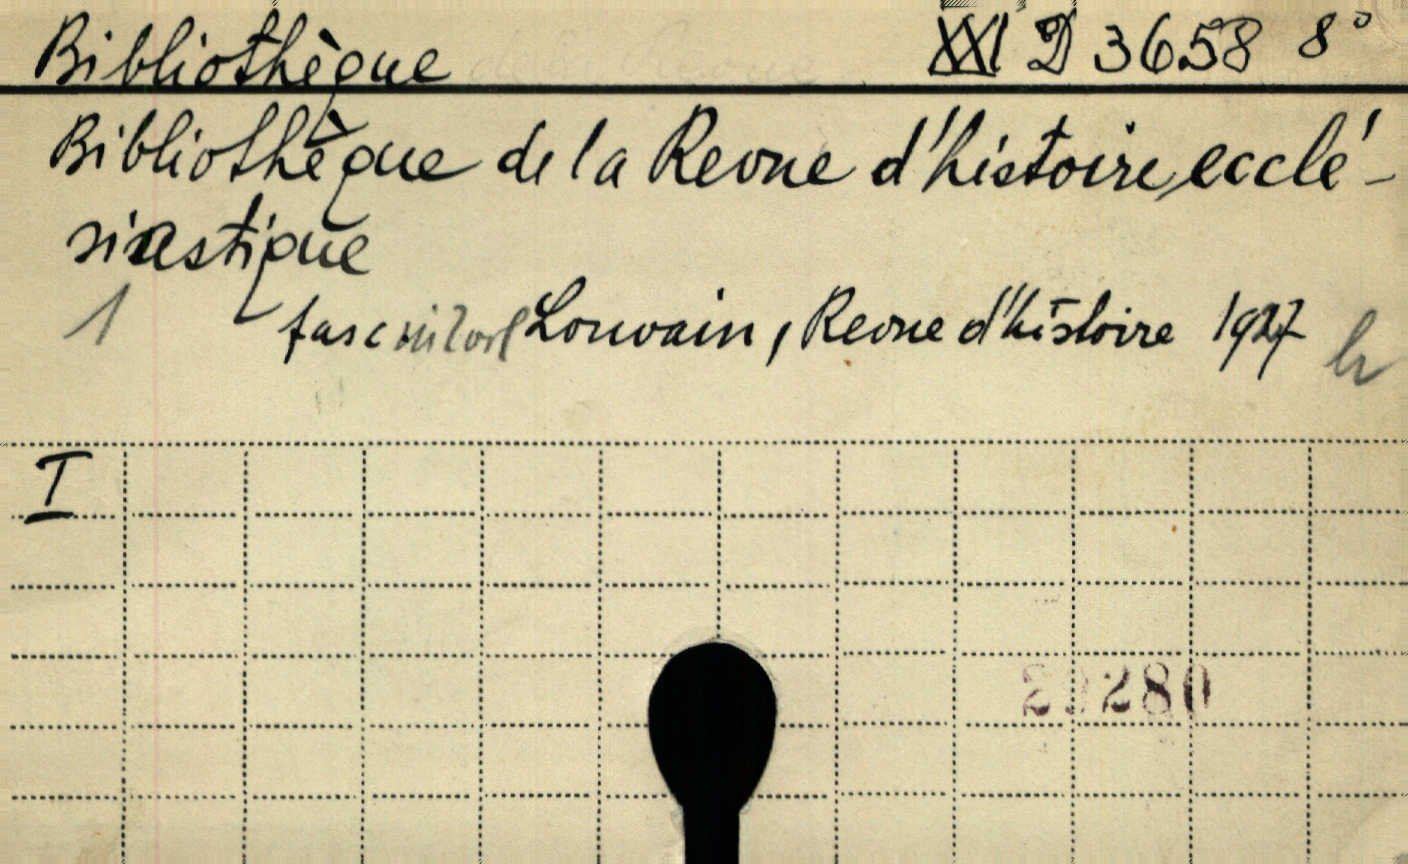 Bibliothèque XXI D 3658 8°
Bibliothèque de la Revue d'histoire ecclé-
siastique
1 fasc Louvain, Revue d'histoire 1927
I
29280